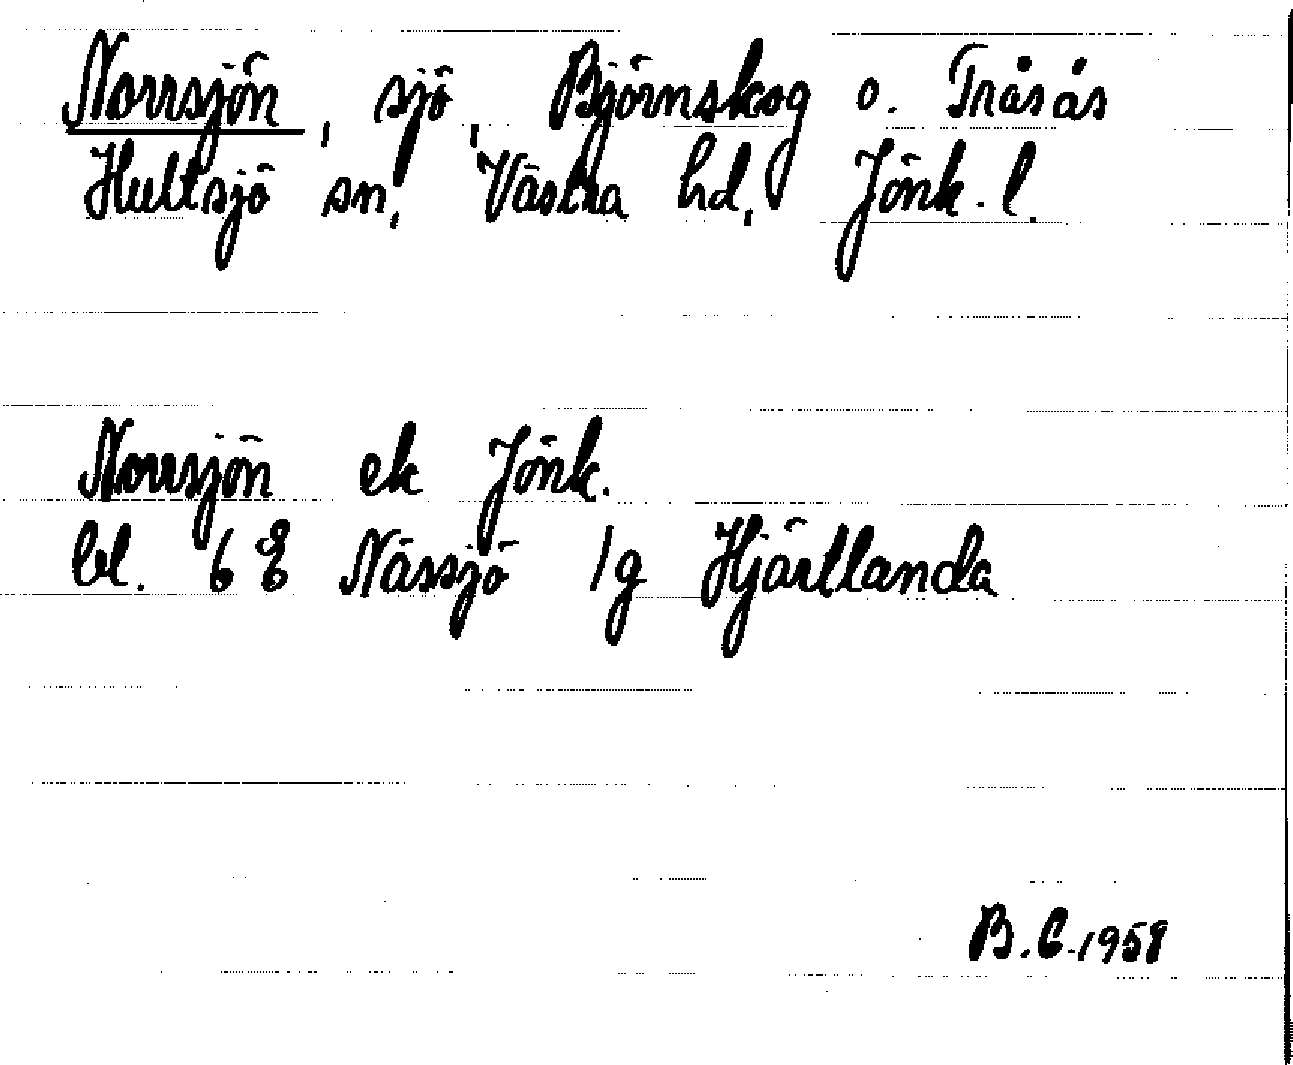 Norrsjön, sjö, Björnskog o. Tråsås
Hultsjö sn, Västra hd, Jönk. l.
Norrsjön ek Jönk.
bl. 6 E Nässjö 1g Hjärtlanda